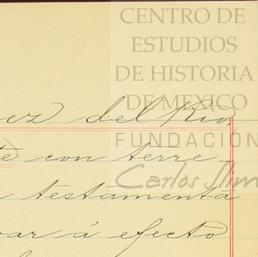 CENTRO DE
ESTUDIOS
DE HISTORIA
DE MEXICO
FUNDACIÓN
Carlos Slim
ez del Rio,
te con terre-
testamenta
ar á efecto